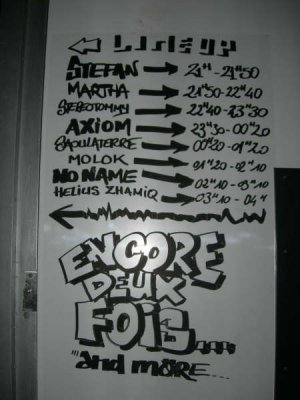 LINEUP
STEFAN 21H - 21H50
MARTHA 21H50 - 22H40
STEREOTOMMY 22H40 - 23H30
AXIOM 23H30 - 00H20
SAOULATERRE 00H20 - 01H20
MOLOK 01H20 - 02H10
NO NAME 02H10 - 03H10
HELIUS ZHAMIQ 03H10 - 04H
ENCORE
DEUX
FOIS....
"and more...